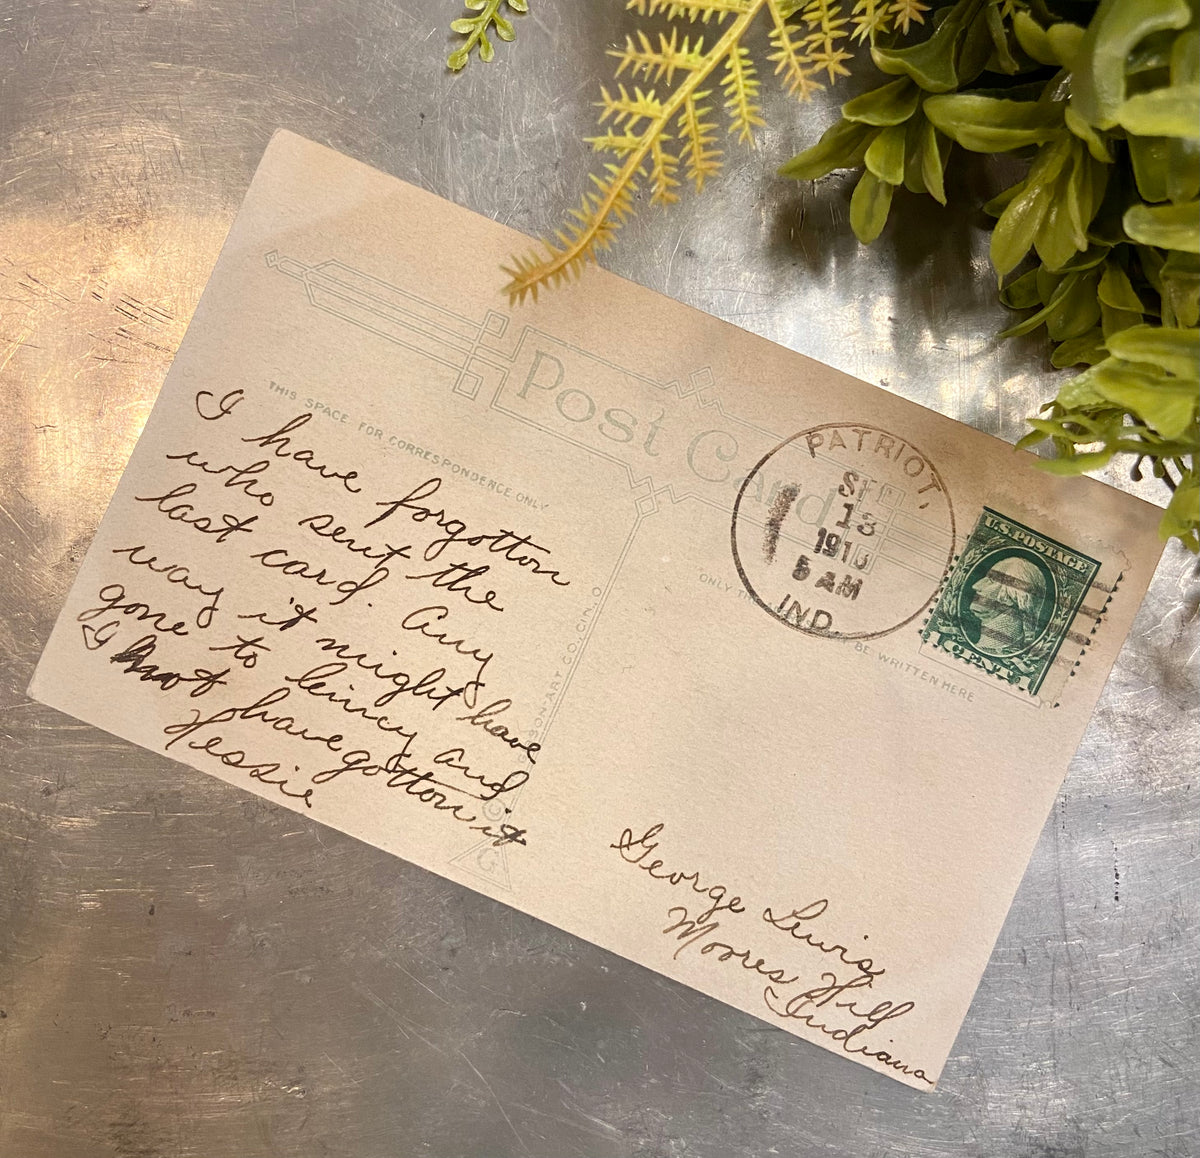 Post Card
THIS SPACE FOR CORRESPONDENCE ONLY
I have forgotton
who sent the
last card. Any
way it might have
gone to
and
I not have gotton it
Hessie
SON ART CO. CIN. O
© G
PATRIOT,
SEP
13
5 AM
IND.
U.S. POSTAGE
1 CENT 1
ONLY THE
BE WRITTEN HERE
George Lewis
Moores Hill
Indiana